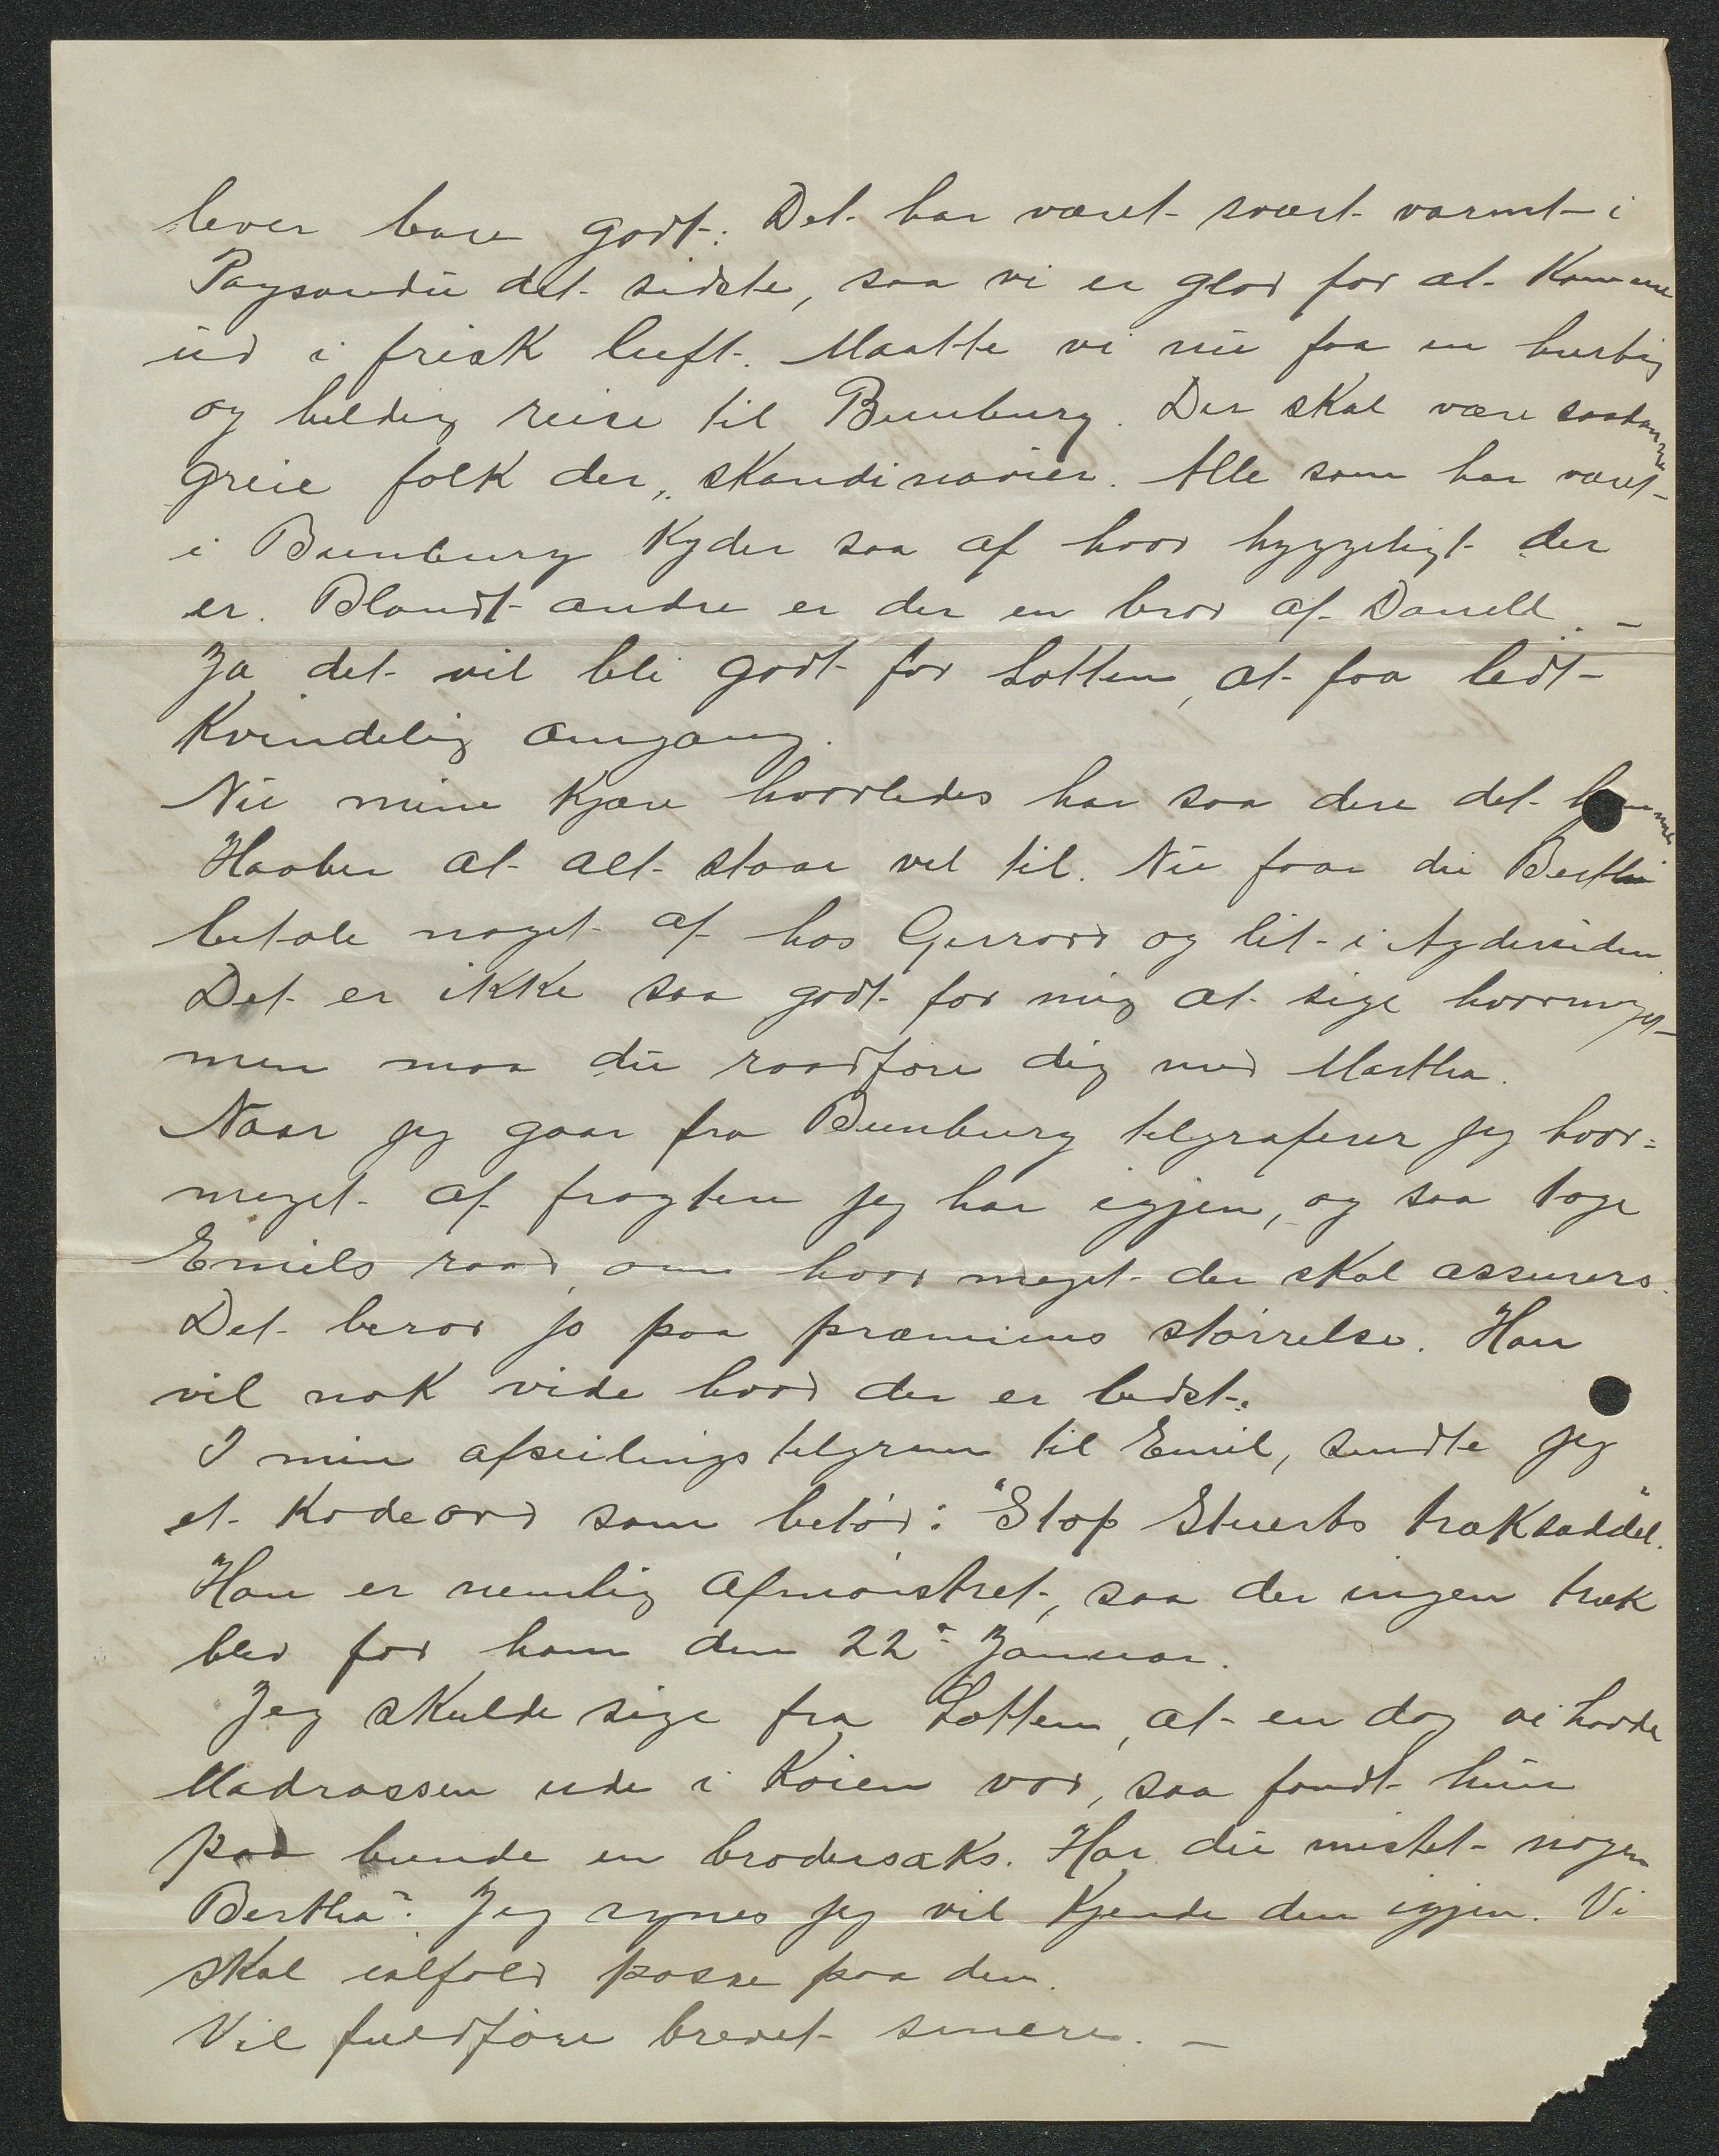 lever bare godt. Det har været svært varmt i
Paysandu det sidste, saa vi er glad for at komme
ud i frisk luft. Maatte vi nu faa en hurtig
og heldig reise til Bunbury. Der skal være saadanne
greie folk der, skandinavier. Alle som har været
i Bunbury skyder saa af hvor hyggeligt der
er. Blandt andre er der en bror af Darrell. –
Ja det vil bli godt for Lotten, at faa lidt
kvindelig omgang.
Nu mine kjære hvorledes har saa dere det hjemme
Haaber at alt staar vel til. Nu faar du Bertha
betale noget af hos Gerrard og lit i Agdesiden.
Det er ikke saa godt for mig at sige hvormeget
men maa du raadføre dig med Martha.
Naar jeg gaar fra Bunbury telgraferer jeg hvor=
meget af fragten jeg har igjen, og saa tage
Emils raad, om hvor meget der skal assureres.
Det beror jo paa præmiens størrelse. Han
vil nok vide hvad der er bedst.
I min afseilings telgram til Emil, sendte jeg
et kodeord som betød: "Stop Stuerts trækseddel".
Han er nemlig afmønstret, saa der ingen træk
blev for ham den 22de Januar.
Jeg skulde sige fra Lotten, at en dag vi havde
Madrassen ude i Køien vor, saa fandt hun
paa bunde en brodersaks. Har du mistet nogen
Bertha? Jeg synes jeg vil kjende den igjen. Vi
skal ialfald passe paa den.
Vil fuldføre brevet senere. –